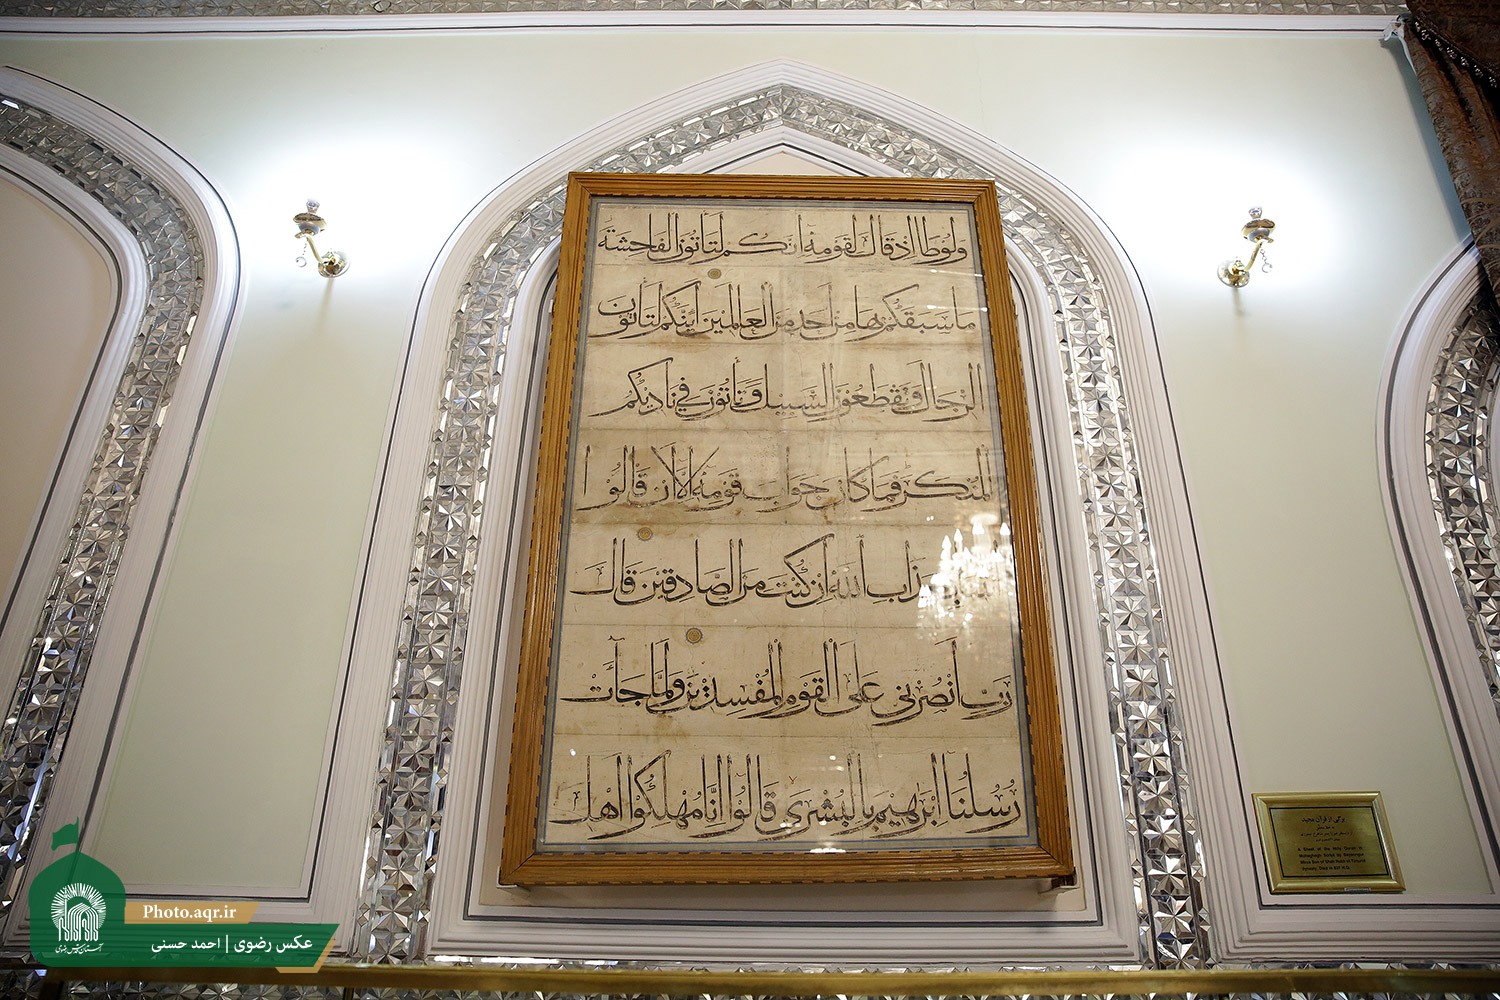 ولوطا اذ قال لقومه انكم لتأتون الفاحشة
ما سبقكم بها من احد من العالمين أئنكم لتأتون
الرجال وتقطعون السبيل وتأتون في ناديكم
المنكر فما كان جواب قومه الا أن قالوا
عذاب الله ان كنت من الصادقين قال
رب انصرني على القوم المفسدين ولما جاءت
رسلنا ابرهيم بالبشرى قالوا انا مهلكوا اهل
برگی از قرآن مجید
A Sheet of the Holy Quran in
Mohaghegh Script by Baysongor
Mirza Son of Shah Rukh of Timurid
Dynasty, Died in 837 H.G.
Photo.aqr.ir
عکس رضوی | احمد حسنی
آستان قدس رضوی